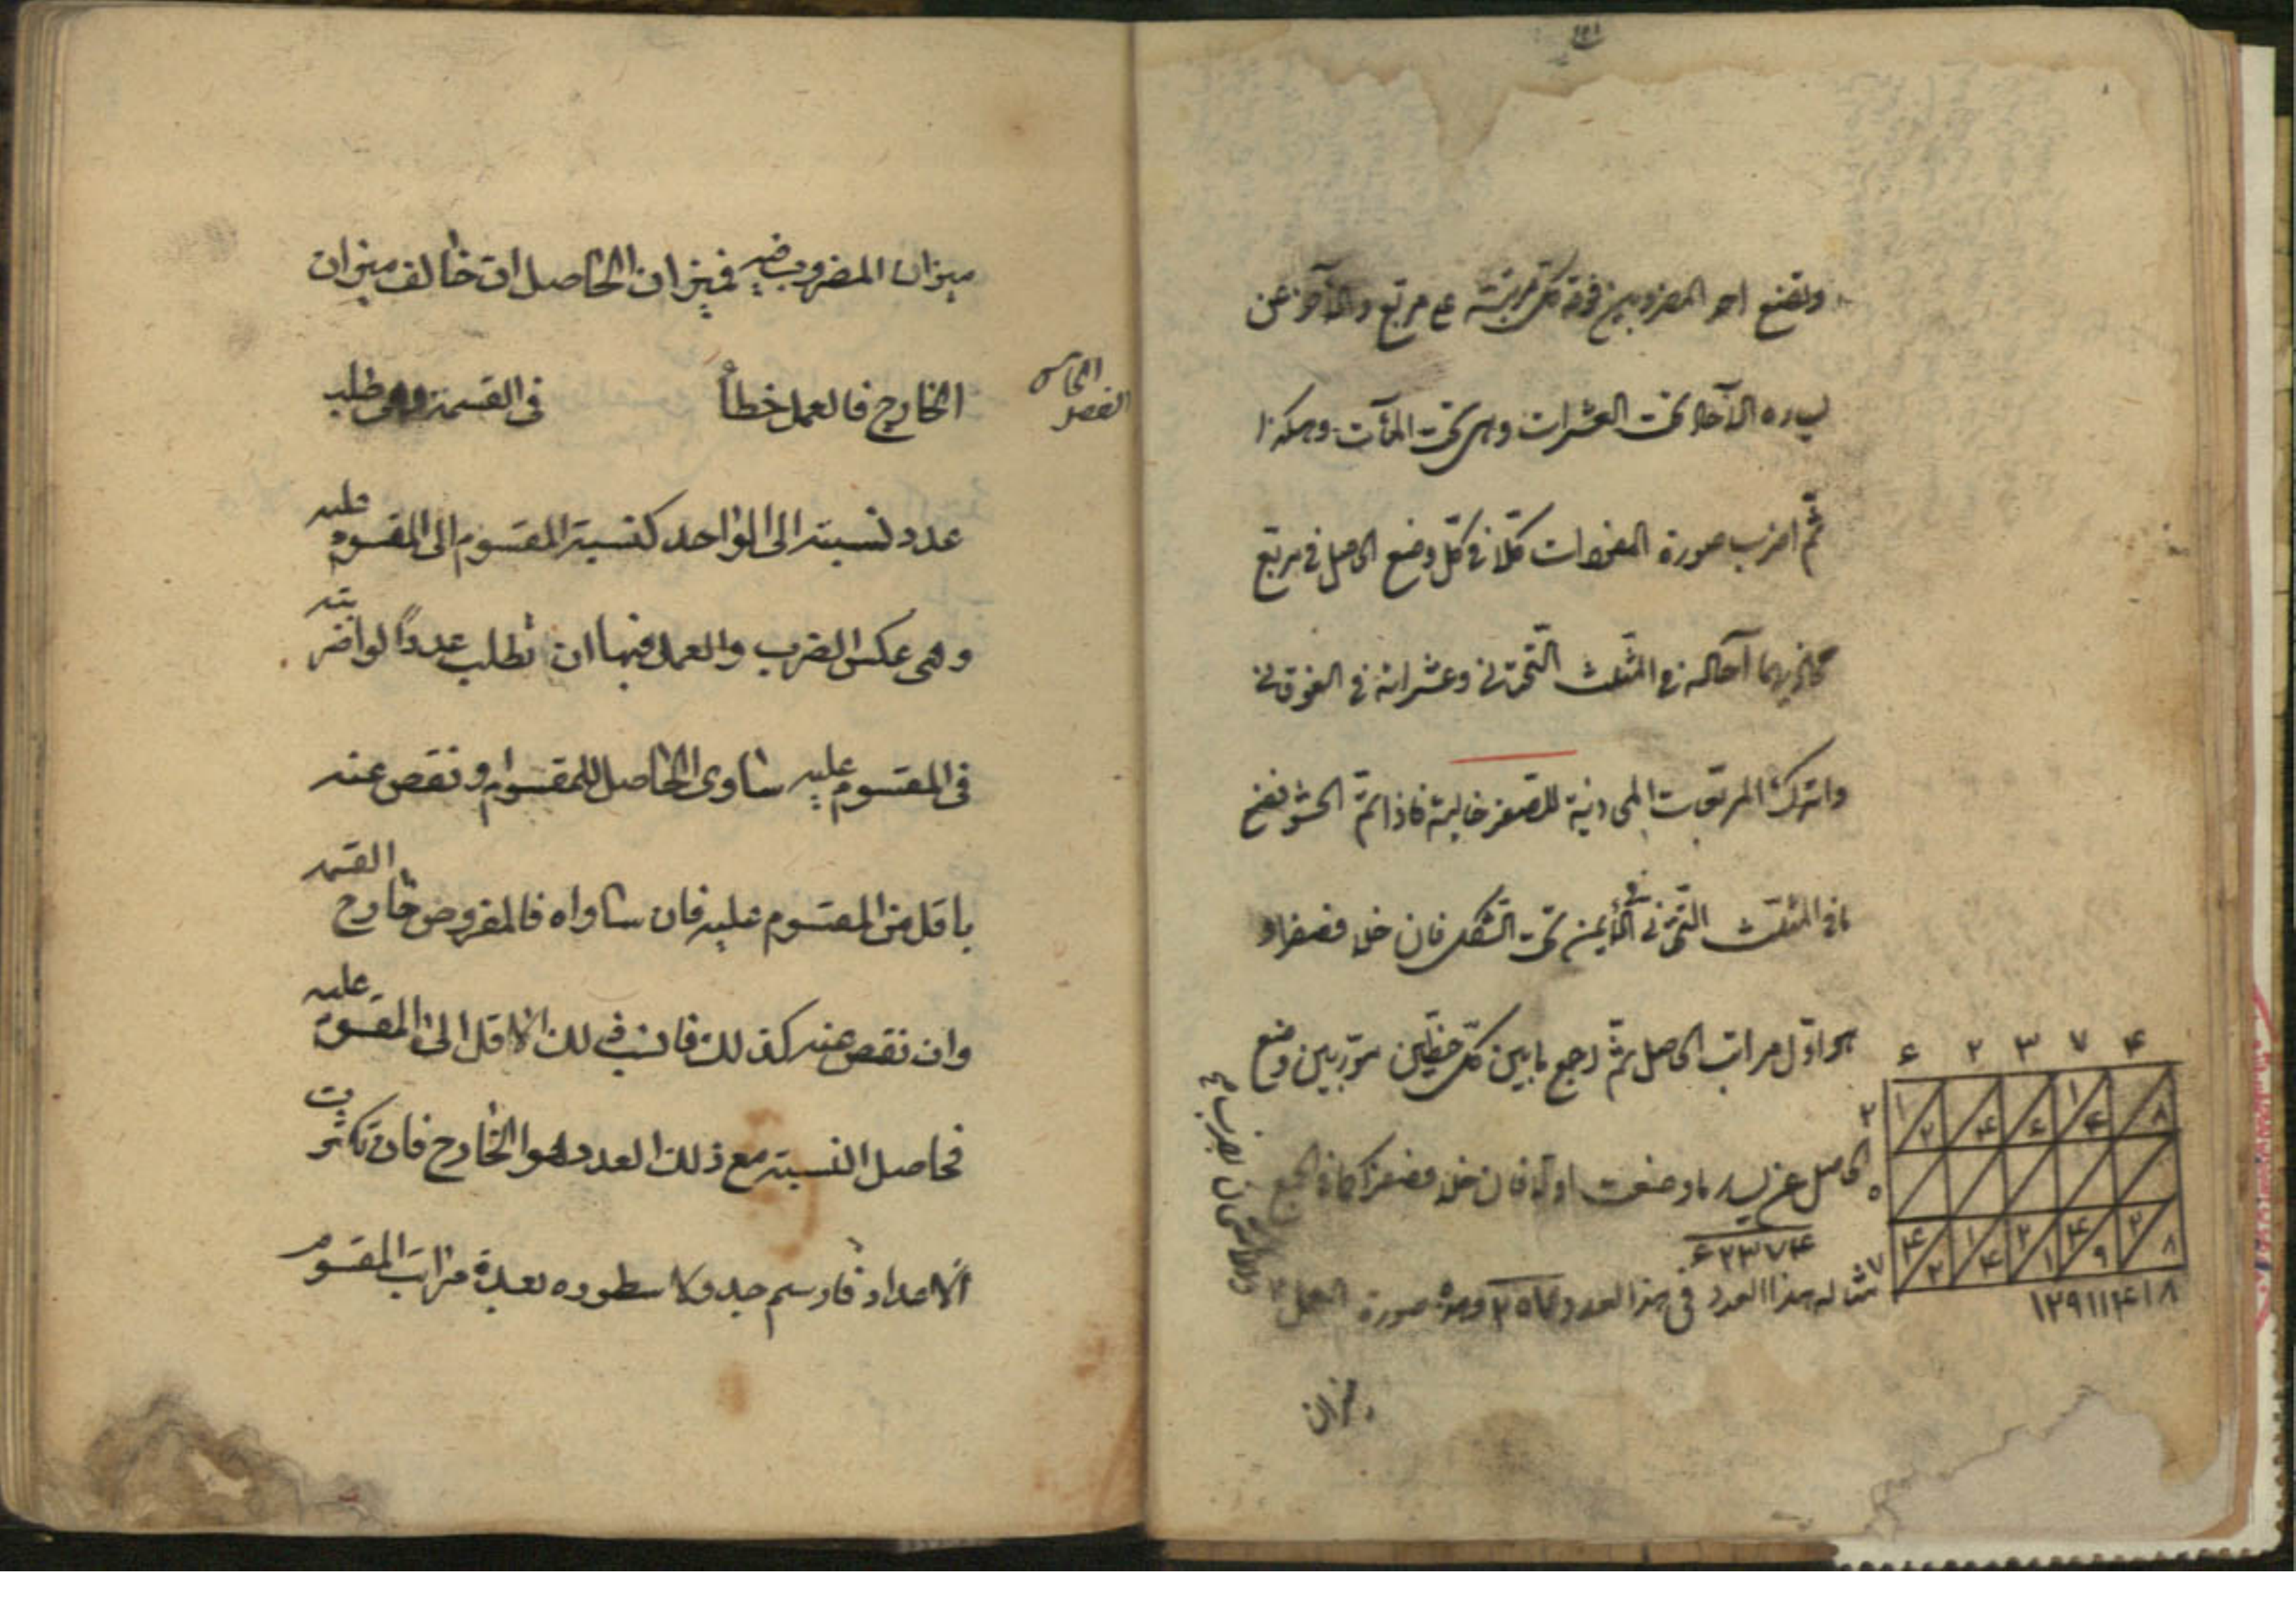 وتضع احد المضروبين فوقه كل مرتبة على مربع والآخر عن
يساره الآحاد تحت العشرات وهى تحت المآت وهكذا
ثم اضرب صورة المفردات كلا فى كل وضع الحاصل فى مربع
محاذيهما آحاده فى المثلث التحتانى وعشراته فى الفوقانى
واترك المربعات المحاذية للصفر خالية فاذا تم الحشو فضع
ما فى المثلث التحتانى الأيمن تحت الشكل فان خلا فصفرا و
هو اول مراتب الحاصل ثم اجمع ما بين كل خطين موربين وضع
الحاصل عن يسار ما وضعت اولا فان خلا فصفرا كما فى الجمع
۶۲۳۷۴
مثاله هذا العدد فى هذا العدد ۲۰۷ وهذه صورة العمل
۶ ۲ ۳ ۷ ۴
۲ ۱ ۲ ۴ ۶ ۱ ۴ ۸
۰
۷ ۴ ۲ ۱ ۴ ۲ ۱ ۴ ۹ ۲ ۸
۱۲۹۱۱۴۱۸
والامتحان بضرب
ميزان
ميزان المضروب فيه فميزان الحاصل ان خالف ميزان
الخارج فالعمل خطأ
الفصل الخامس
فى القسمة وهى طلب
عدد نسبته الى الواحد كنسبة المقسوم الى المقسوم عليه
وهى عكس الضرب والعمل فيها ان تطلب عددا لو اضربته
فى المقسوم عليه ساوى الحاصل للمقسوم او نقص عنه
باقل من المقسوم عليه فان ساواه فالمفروض خارج القسمة
وان نقص عنه كذلك فانسب ذلك الاقل الى المقسوم عليه
فحاصل النسبة مع ذلك العدد هو الخارج فان تكثرت
الاعداد فارسم جدولا سطوره بعدة مراتب المقسوم